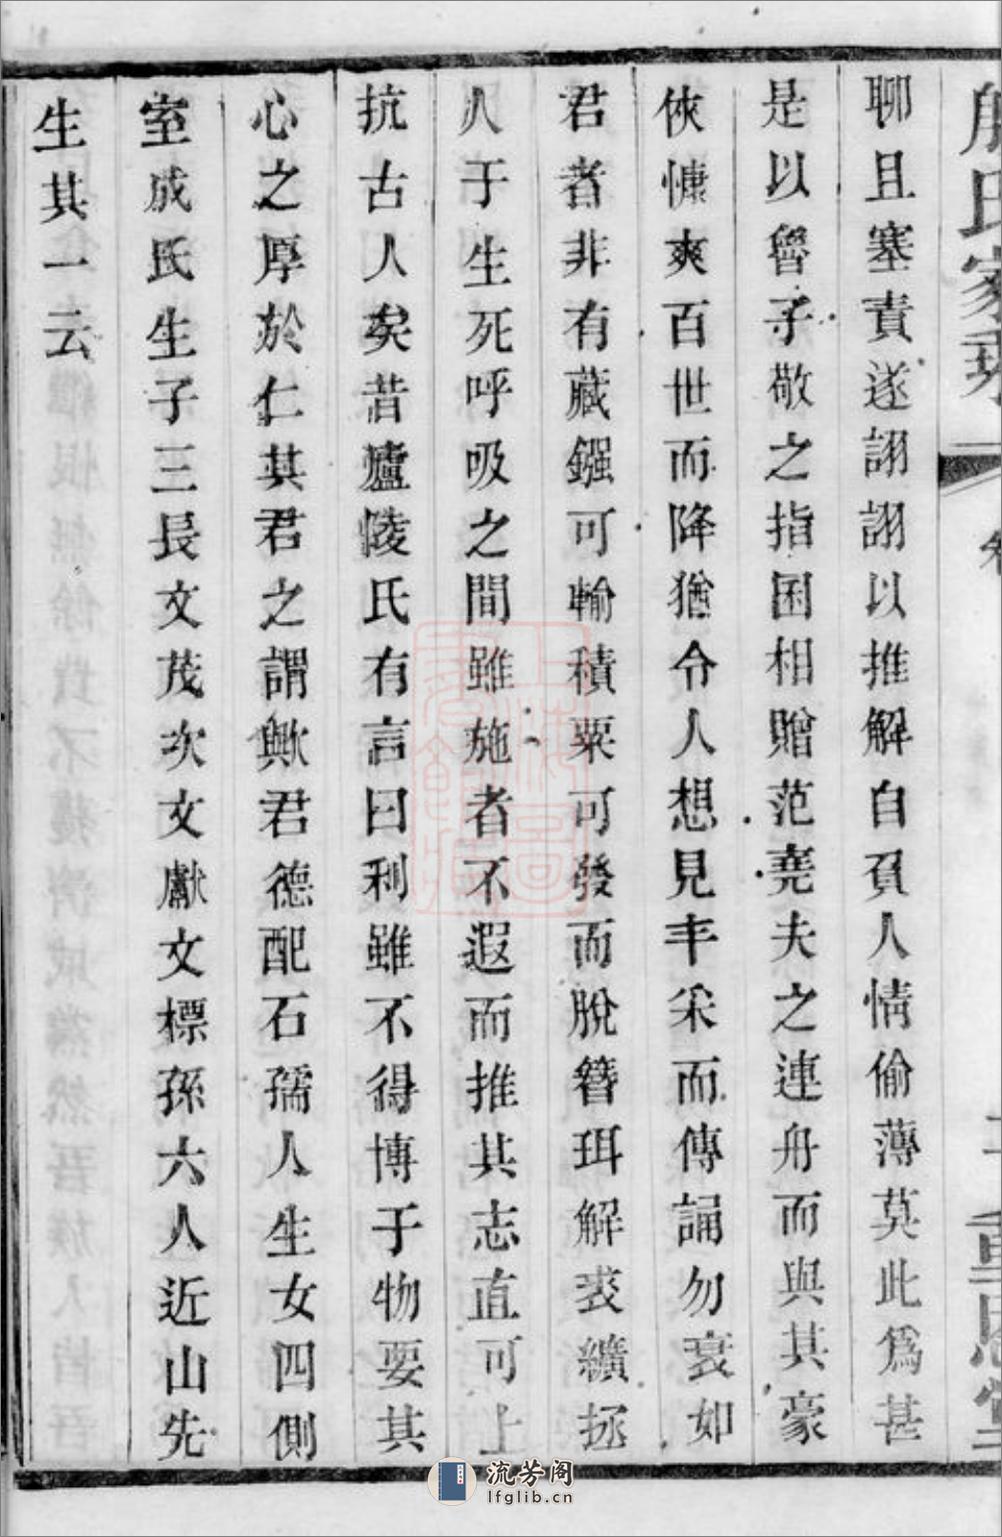 氏家乘
聊且塞責遂詡詡以推解自負人情偷薄莫此爲甚
是以魯子敬之指囷相贈范堯夫之連舟而與其豪
俠慷爽百世而降猶令人想見丰采而傳誦勿衰如
君者非有藏鏹可輸積粟可發而脫簪珥解裘纊拯
人于生死呼吸之間雖施者不遐而推其志直可上
抗古人矣昔廬陵氏有言曰利雖不得博于物要其
心之厚於仁其君之謂歟君德配石孺人生女四側
室成氏生子三長文茂次文獻文標孫六人近山先
生其一云
流芳阁
lfglib.cn